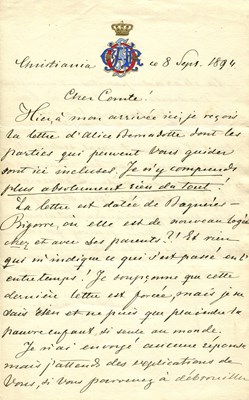 Christiania ce 8 Sept. 1894
Cher Comte!
Hier, à mon arrivée ici, je reçois
la lettre d'Alice Bernadotte dont les
parties qui peuvent Vous guider
sont ici incluses. Je n'y comprends
plus absolument rien du tout!
La lettre est datée de Bagnères-
Bigorre, où elle est de nouveau logée
chez et avec ses parents?! Et rien
qui m'indique ce qui s'est passé en l'
entretemps! Je soupçonne que cette
dernière lettre est forcée, mais je ne
sais rien et ne puis que plaindre la
pauvre enfant, si seule au monde.
Je n'ai envoyé aucune réponse
mais j'attends des explications de
Vous, si Vous parvenez à débrouiller